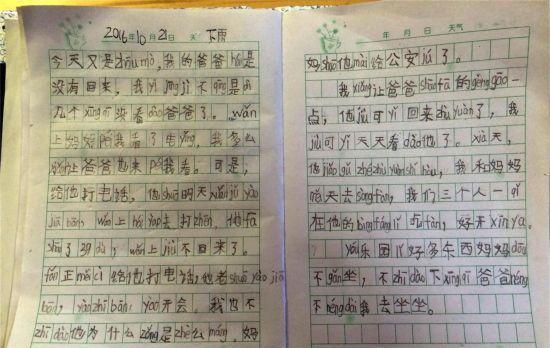 2016年10月21日 天 下雨
今天又是zhōu mò,我的爸爸hái是
没有回来,我yǐ jīng jì不qīng是dì
几个xīng qī没看dào爸爸了。wǎn
上妈妈陪我看了电yǐng,我多么
xiǎng让爸爸回来péi我看。可是,
给他打电话,他shuō白天xùn liàn jiù yào
jiā bān,wǎn上hái yào去打zhēn,他fā
shāo了39度,wǎn上jiù不回来了。
fǎn正měi cì给他打电话,他老shuō yào jiā
bān,yào zhí bān,yào开会。我也不
zhī dào他为什么zǒng是zhè么máng,妈
年 月 日 天气
妈shuō他mài给公安jú了。
我xiǎng让爸爸shāo fā的gèng gāo一
点,他jiù可yǐ回来zhù yuàn了,我
jiù可yǐ天天看dào他了。xià天,
他jiǎo gǔ zhé zhù yuàn shí hòu,我和妈妈
每天去sòng fàn,我们三个人一qǐ
在他的bìng fáng lǐ吃fàn,好开xīn ya。
yóu乐园ǐ好多东西妈妈dōu
不gǎn坐,不zhī dào下xīng qī爸爸néng
不néng dài我去坐坐。